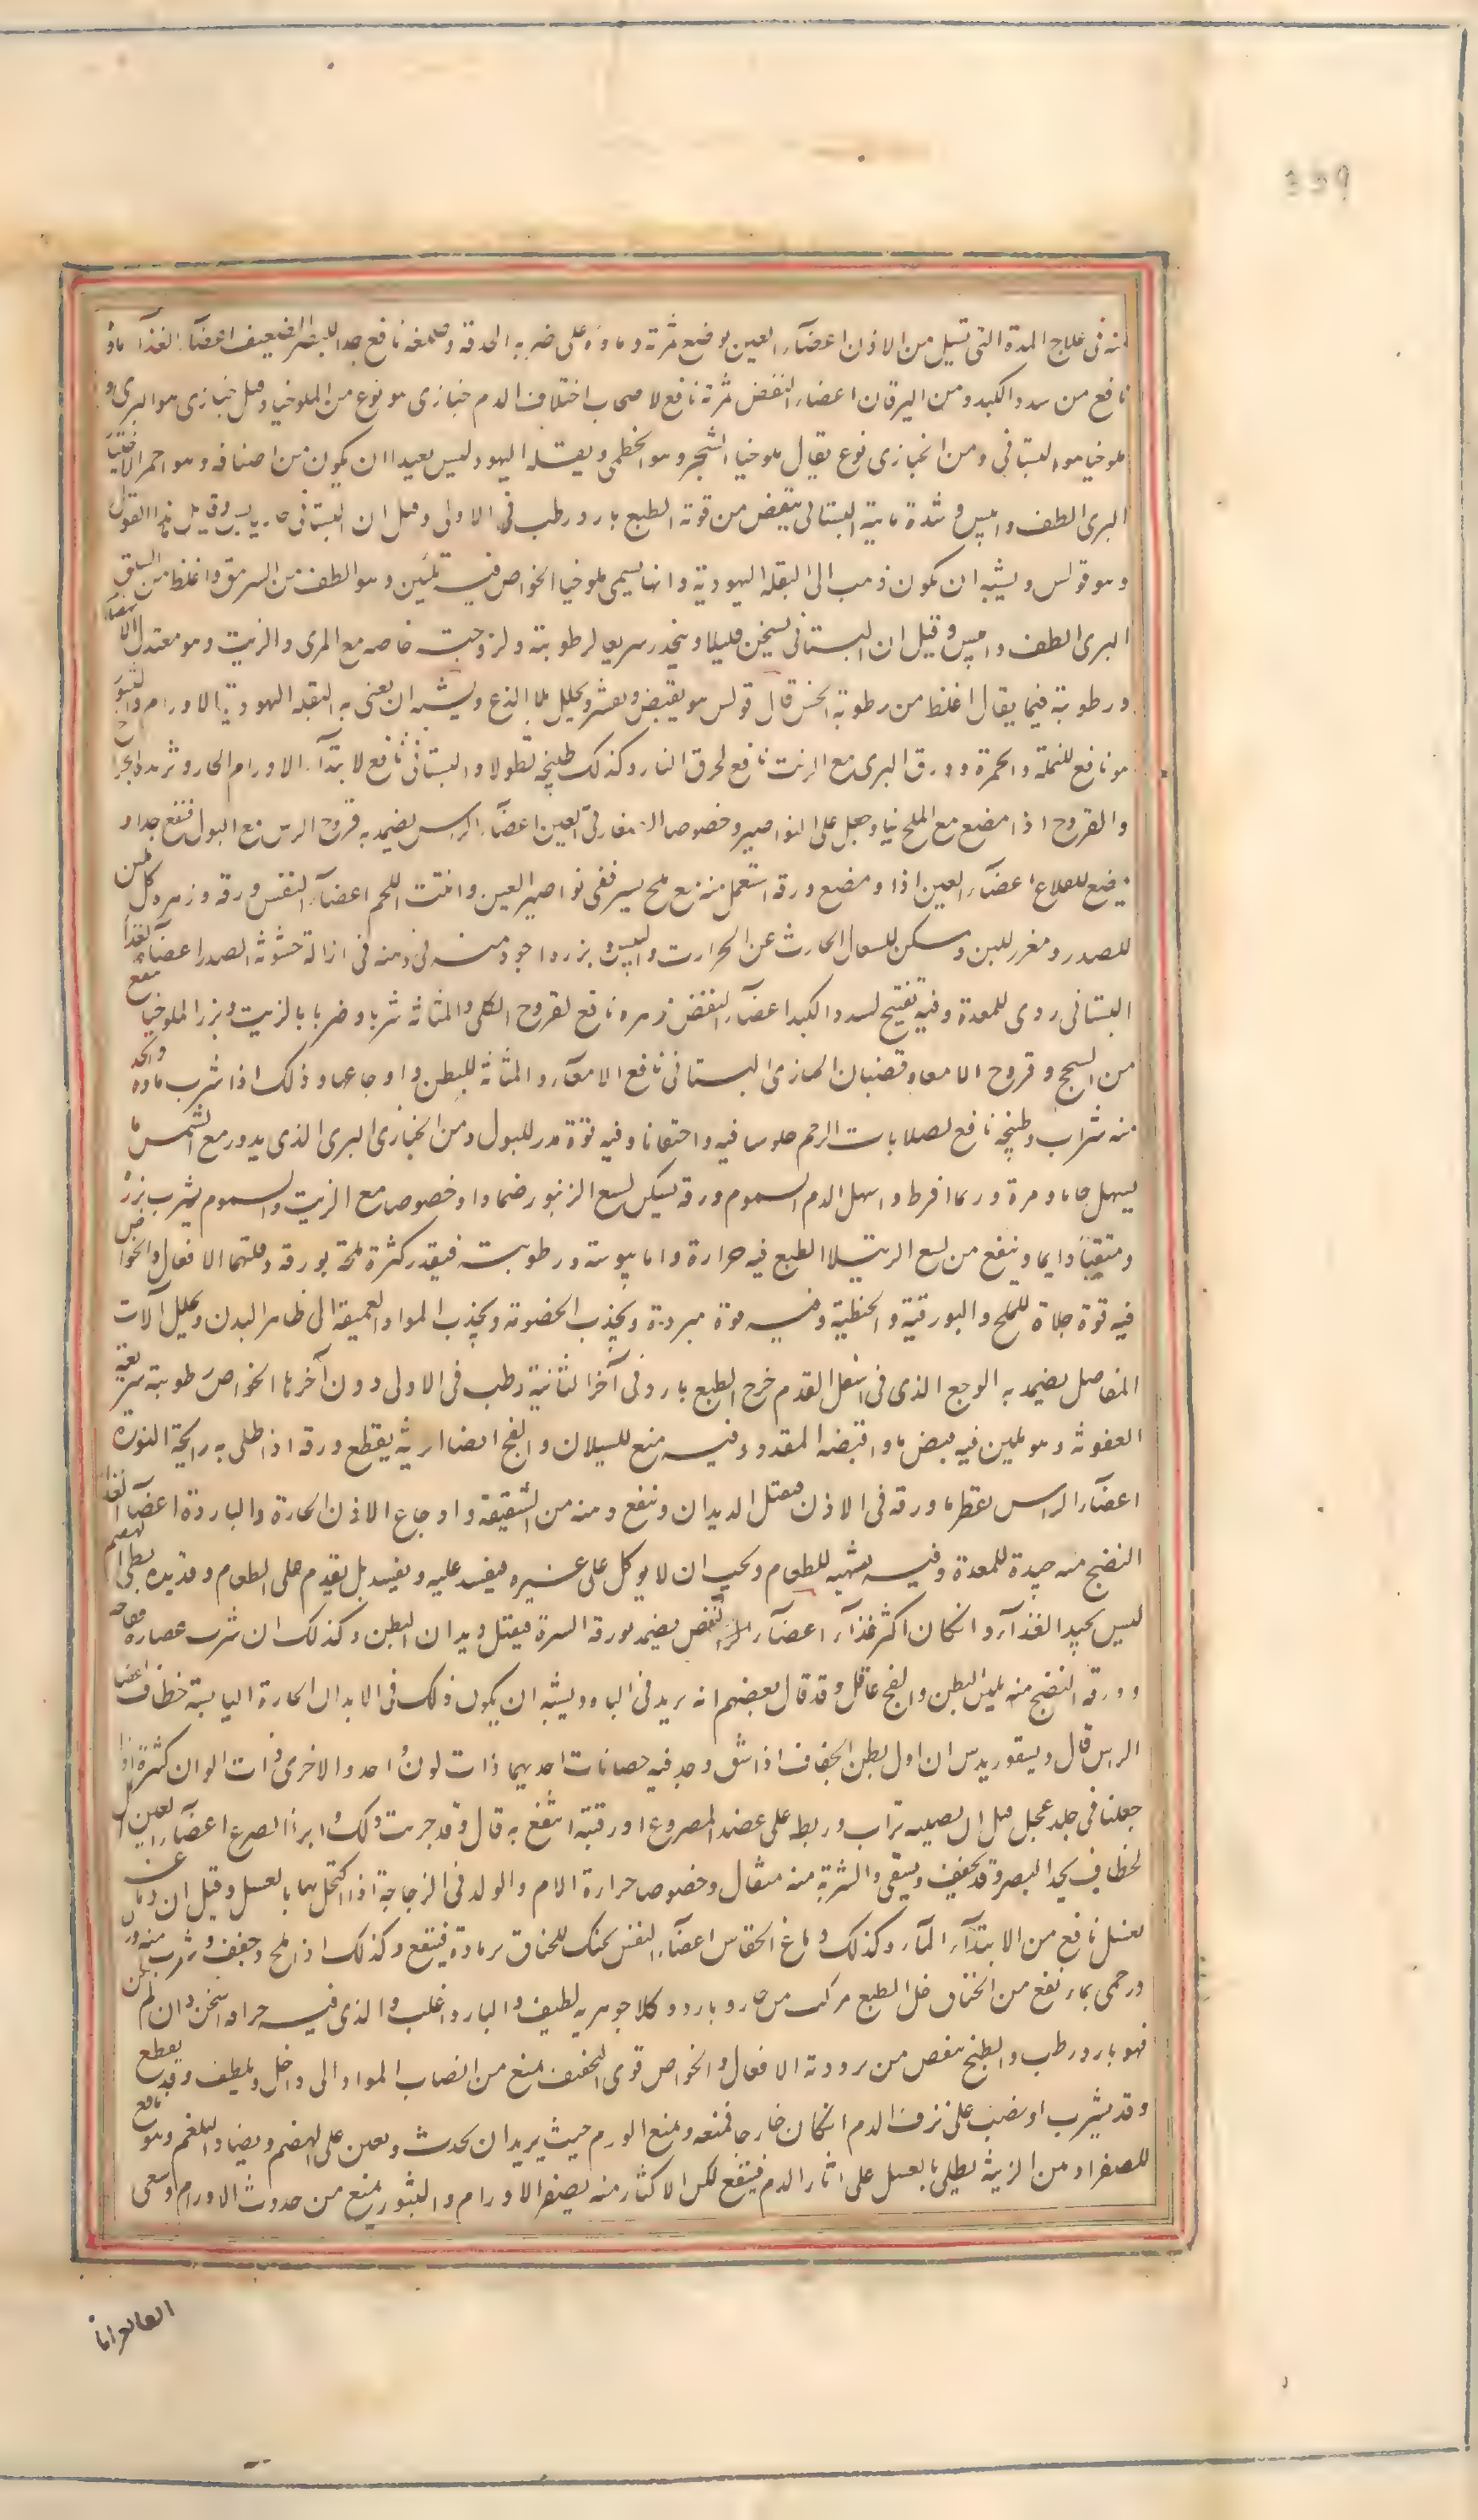 339
منه فى علاج المدة التى تسيل من الاذن اعضآء العين يوضع ثمرته وماؤه على ضربه الحدقة وصمغه نافع جدا للبصر الضعيف اعضآء الغذآ ماؤه
نافع من سدد الكبد ومن اليرقان اعضاء النفض ثمرته نافع لاصحاب اختلاف الدم خبازى هو نوع من الملوخيا وقيل خبازى هو البرى و
ملوخيا هو البستانى ومن الخبازى نوع يقال ملوخيا الشجر وهو الخطمى وبقلة اليهود ليس بعيدا ان يكون من اصنافه وهو احمر
البرى الطف وايبس وشدة مايية البستانى ينقض من قوته الطبع بارد رطب فى الاولى وقيل ان البستانى حار يابس وقيل هذا القول
وهو قولس ويشبه ان يكون ذهب الى البقلة اليهودية وانها يسمى ملوخيا الخواص فيه تليين وهو الطف من السرمق واغلظ من السلق
البرى الطف وايبس وقيل ان البستانى يسخن قليلا وينحدر سريعا لرطوبته ولزوجته خاصه مع المرى والزيت وهو معتدل
ورطوبته فيما يقال اغلظ من رطوبة الخس قال قولس هو يقبض ويعشر ويحلل بلا لذع ويشبه ان يعنى به البقلة اليهودية الاورام والبثور
هو نافع للنملة والحمرة وورق البرى مع الزيت نافع لحرق النار وكذلك طبيخه نطولا والبستانى نافع لابتدآء الاورام الحار وتزيده
والقروح اذا مضغ مع الملح نيا وجعل على النواصير وخصوصا الى مفارق العين اعضآء الراس يضمد به قروح الرس مع البول فنفع جدا و
يوضع للقلاع اعضآء العين اذا ومضغ ورقه استعمل منه مع ملح يسير نفى نواصير العين وانبتت اللحم اعضآء النفس ورقه وزهره كل ملين
للصدر ومغزر للبن ومسكن للسعال الحارث عن الحرارت واليبس وبزره اجود منه فى ومنه فى ازالة خشونة الصدر اعضآء الغذا
البستانى ردى للمعدة وفيه تفتيح لسدد الكبد اعضآء النفض زهره نافع لقروح الكلى والمثانة شربا وضربا بالزيت وبزر الملوخيا ينفع
من السحج وقروح الامعا وقضبان الخبازى البستانى نافع الامعآء والمثانة للبطن واوجاعها وذلك اذا شرب ماؤه
منه شراب وطبيخه نافع لصلابات الرحم جلوسا فيه واحتقانا وفيه قوة مدر للبول ومن الخبازى البرى الذى يدور مع الشمس ما
يسهل خاما ومرة وربما افرط واسهل الدم السموم ورقه يسكن لسع الزنبور ضمادا وخصوصا مع الزيت والسموم يشرب بزره
ومتقيئا دايما وينفع من لسع الرتيلا الطبع فيه حرارة واما يبوسته ورطوبته فبقدر كثرة ملحة بورقه وقلتهما الافعال والخواص
فيه قوة جلاة للملح والبورقية والحنطية وفيه قوة مبردة ويجذب الخضونة ويجذب المواد العميقة الى ظاهر البدن ويحلل آلات
المفاصل يضمد به الوجع الذى فى اسفل القدم خرج الطبع بارد فى آخر الثانية رطب فى الاولى دون آخرها الخواص رطوبته سريعة
العفونة وهو ملين فيه قبض ما واقبضه المقدد وفيه منع للسيلان والفج ايضا اريه يقطع ورقه اذا طلى به رايحة النورة
اعضآء الراس يقطر ما ورقه فى الاذن فيقتل الديدان وينفع ومنه من الشقيقة واوجاع الاذن الحارة والباردة اعضآء الغذا
النضج منه جيدة للمعدة وفيه تشهية للطعام ويجب ان لا يوكل على غيره فيفسد عليه ويفسد بل يقدم على الطعام وقديده بطى الهضم
ليس بجيد الغذآء وان كان اكثر غذآء اعضآء النفض يضمد بورقه السرة فيقتل ديدان البطن وكذلك ان شرب عصارة
وورقه النضج منه يلين البطن والفج عاقل وقد قال بعضهم انه يزيد فى الباه ويشبه ان يكون ذلك فى الابدان الحارة اليابسة خطاف اعضا
الرس قال ديسقوريدس ان اول بطن الخفاف اذا شق وجد فيه حصاتات احديهما ذات لون احد والاخرى ذات الوان كثرة اذا
جعلنا فى جلد عجل قبل ان يصيبه تراب وربط على عضد المصروع او رقبته انتفع به قال وقد جربت ذلك وابرا الصرع اعضآء العين اكل
الخطاف يحد البصر وقد يجفف ويسقى والشربة منه مثقال وخصوصا حرارة الام والولد فى الزجاجة اذا اكتحل بهما بالعسل وقيل ان دماغه
بعسل نافع من الابتدآء المآء وكذلك دماغ الخفاس اعضآء النفس يحنك للخناق برمادة فينتفع وكذلك اذا ملح وجفف وشرب منه
درخمى بماء نفع من الخناق خل الطبع مركب من حار وبارد وكلا جوهريه لطيف والبارد اغلب والذى فيه حرافه اسخن وان لم يكن
فهو بارد رطب والطبخ ينقص من برودته الافعال والخواص قوى التجفيف يمنع من انصاب المواد الى داخل ويلطف وقد يقطع
وقد يشرب او يصب على نزف الدم ان كان خارجا فمنعه ويمنع الورم حيث يريد ان يحدث ويعين على الهضم ويضاد البلغم وهو نافع
للصفرا ومن الزينة يطلى بالعسل على اثار الدم فينتفع لكن الاكثار منه يصفر الاورام والبثور يمنع من حدوث الاورام وسعى